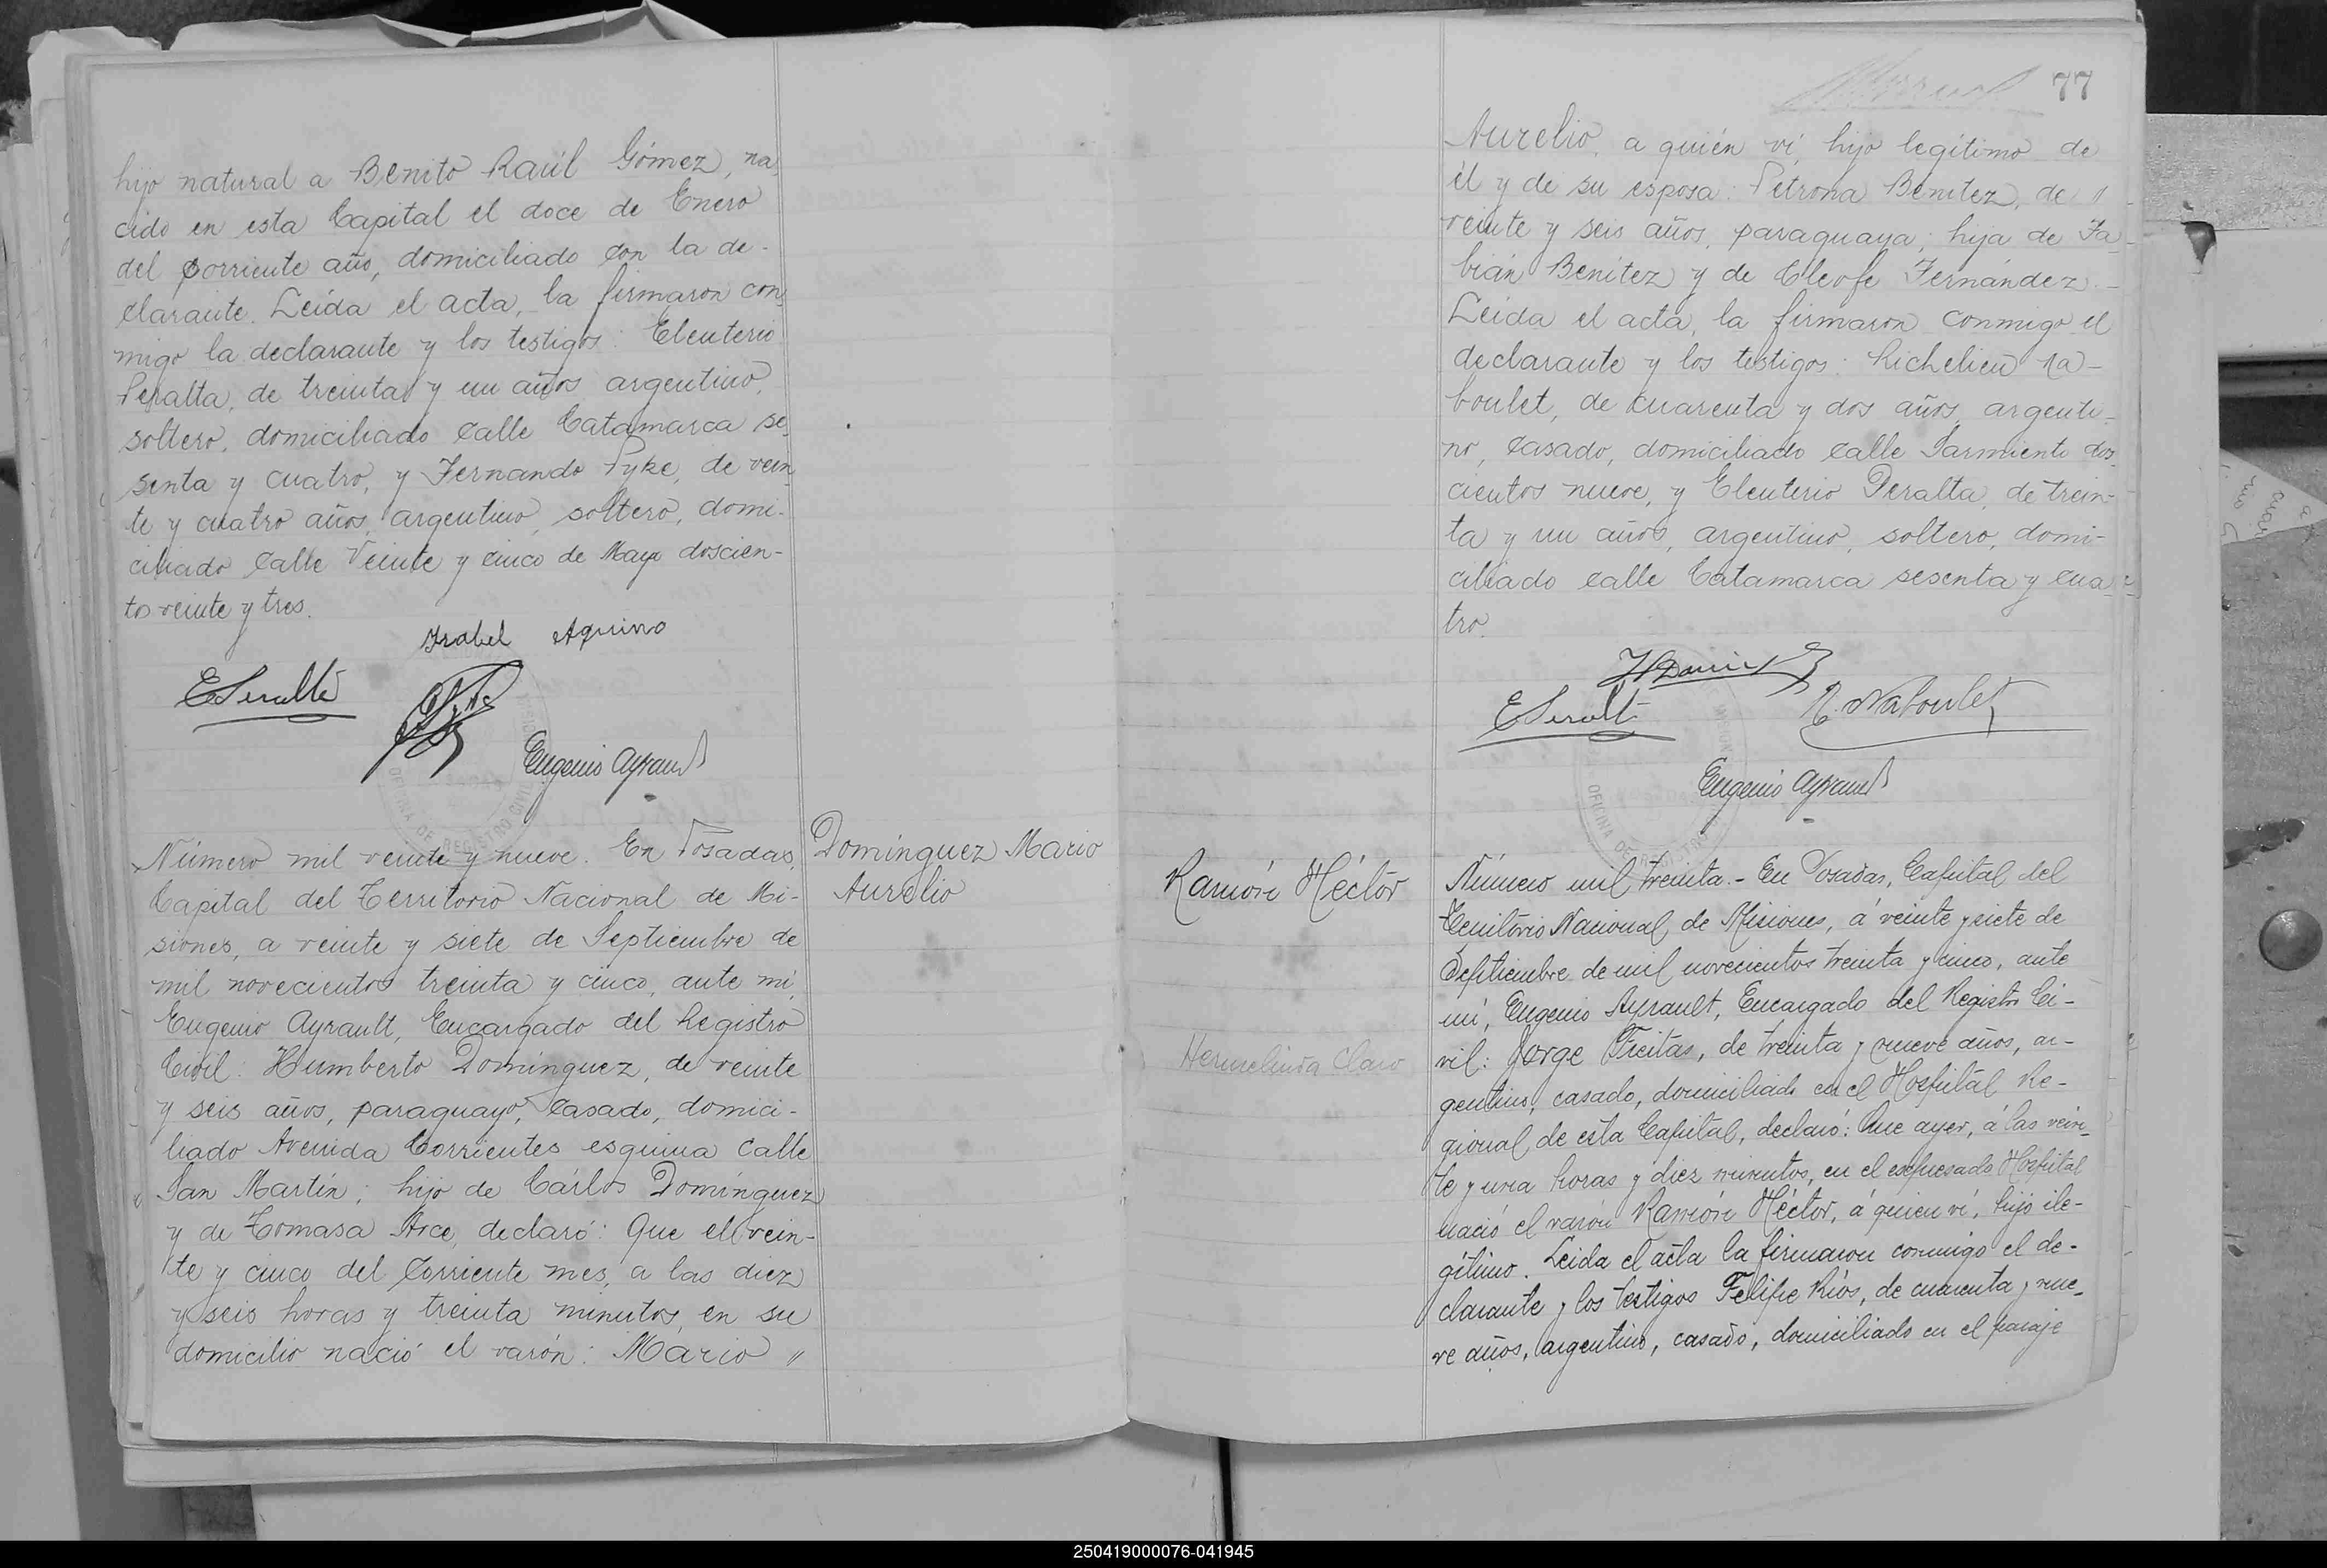 hijo natural a Benito Raúl Gómez, na-
cido en esta Capital el doce de Enero
del corriente año, domiciliado con la de-
clarante. Leída el acta, la firmaron con
migo la declarante y los testigos: Eleuterio
Peralta, de treinta y un años argentino,
soltero, domiciliado calle Catamarca se-
senta y cuatro, y Fernando Pyke, de vein
te y cuatro años, argentino, soltero, domi-
ciliado calle Veinte y cinco de Mayo doscien-
tos veinte y tres.
Isabel Aquino
E Peralta
Eugenio Ayrault
OFICINA DE REGISTRO CIVIL
Número mil veinte y nueve. En Posadas,
Capital del Territorio Nacional de Mi-
siones, a veinte y siete de Septiembre de
mil novecientos treinta y cinco, ante mí,
Eugenio Ayrault, Encargado del Registro
Civil: Humberto Domínguez, de veinte
y seis años, paraguayo, casado, domici-
liado Avenida Corrientes esquina calle
San Martín; hijo de Cárlos Domínguez
y de Tomasa Arce, declaró: Que el vein-
te y cinco del corriente mes, a las diez
y seis horas y treinta minutos, en su
domicilio nació el varón: Mario "
Domínguez Mario
Aurelio
77
Aurelio, a quién ví, hijo legítimo de
él y de su esposa: Petrona Benítez, de "
veinte y seis años, paraguaya; hija de Fa-
bián Benítez y de Cleofe Fernández.-
Leída el acta, la firmaron conmigo el
declarante y los testigos: Richelieu Na-
boulet, de cuarenta y dos años, argenti-
no, casado, domiciliado calle Sarmiento dos-
cientos nueve, y Eleuterio Peralta, de trein-
ta y un años, argentino, soltero, domi-
ciliado calle Catamarca sesenta y cua-
tro.
E Peralta
R. Naboulet
Eugenio Ayrault
OFICINA DE REGISTRO
Ramón Héctor
Hermelinda Claro
Número mil treinta.- En Posadas, Capital del
Territorio Nacional de Misiones, á veinte y siete de
Septiembre de mil novecientos treinta y cinco, ante
mí, Eugenio Ayrault, Encargado del Registro Ci-
vil: Jorge Freitas, de treinta y nueve años, ar-
gentino, casado, domiciliado en el Hospital Re-
gional de esta Capital, declaró: Que ayer, á las vein-
te y una horas y diez minutos, en el expresado Hospital
nació el varón Ramón Héctor, á quien ví, hijo ile-
gítimo. Leida el acta la firmaron conmigo el de-
clarante y los testigos Felipe Ríos, de cuarenta y nue-
ve años, argentino, casado, domiciliado en el paraje
250419000076-041945